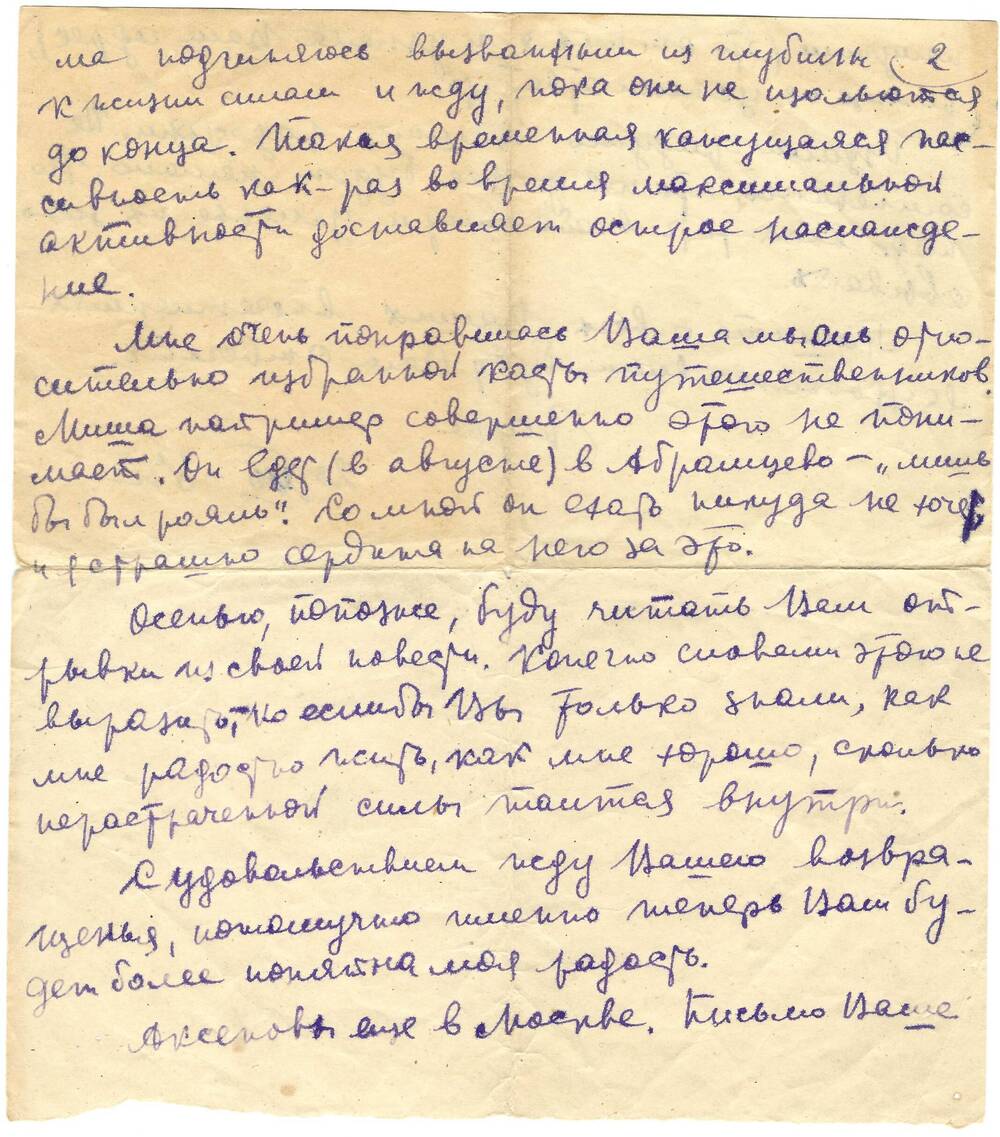 ма подчиняюсь вызванным из глубины 2
к жизни силам и жду, пока они не изольются
до конца. Такая временная кажущаяся пас-
сивность как-раз во время максимальной
активности доставляет острое наслажде-
ние.
Мне очень понравилась Ваша мысль отно-
сительно избранной касты путешественников.
Миша например совершенно этого не пони-
мает. Он едет (в августе) в Абрамцево – „лишь
бы был рояль". Со мной он ехать никуда не хочет
и я страшно сердита на него за это.
Осенью, попозже, буду читать Вам от-
рывки из своей повести. Конечно словами этого не
выразить, но еслибы Вы только знали, как
мне радостно жить, как мне хорошо, сколько
нерастраченной силы таится внутри.
С удовольствием жду Вашего возвра-
щенья, потомучто именно теперь Вам бу-
дет более понятна моя радость.
Аксеновы еще в Москве. Письмо Ваше